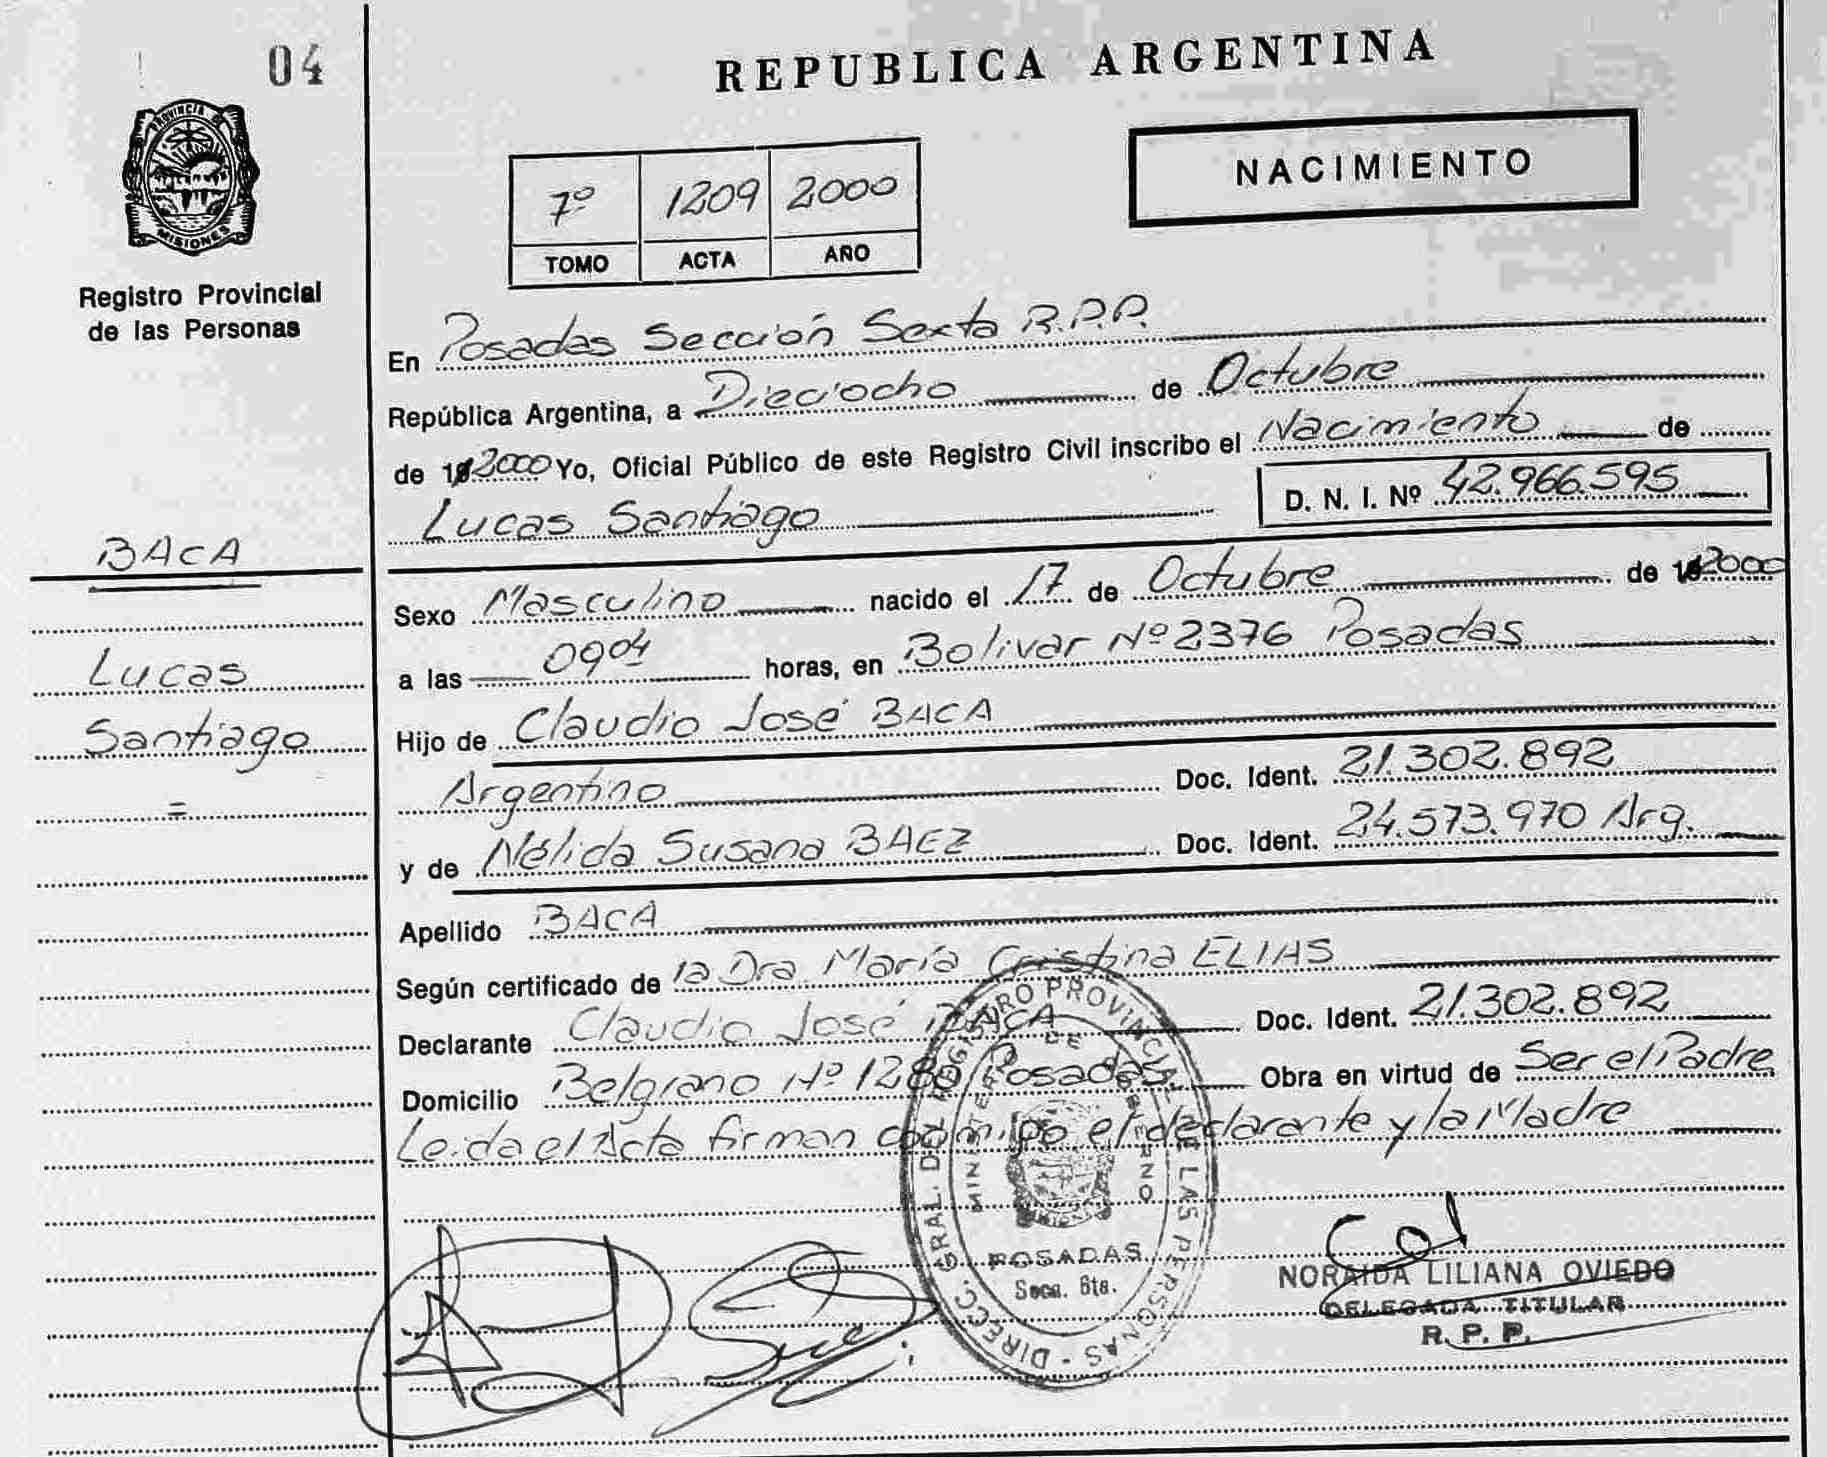 04
REPUBLICA ARGENTINA
PROVINCIA DE
MISIONES
Registro Provincial
de las Personas
NACIMIENTO
7º 1209 2000
TOMO ACTA AÑO
En Posadas Sección Sexta R.P.P.
República Argentina, a Dieciocho de Octubre
de 2000 Yo, Oficial Público de este Registro Civil inscribo el Nacimiento de
Lucas Santiago D. N. I. Nº 42.966.595
BACA
Lucas
Santiago
=
Sexo Masculino nacido el 17 de Octubre de 2000
a las 09 04 horas, en Bolivar Nº 2376 Posadas
Hijo de Claudio José BACA
Argentino Doc. Ident. 21.302.892
y de Nélida Susana BAEZ Doc. Ident. 24.573.970 Arg.
Apellido BACA
Según certificado de la Dra. María Cristina ELIAS
Declarante Claudio José BACA Doc. Ident. 21.302.892
Domicilio Belgrano Nº 1280 Posadas Obra en virtud de Ser el Padre
Leida el Acta firman conmigo el declarante y la Madre
DIRECC. GRAL. DEL REGISTRO PROVINCIAL DE LAS PERSONAS
MINISTERIO DE GOBIERNO
POSADAS
Secc. 6ta.
NORAIDA LILIANA OVIEDO
DELEGADA TITULAR
R. P. P.